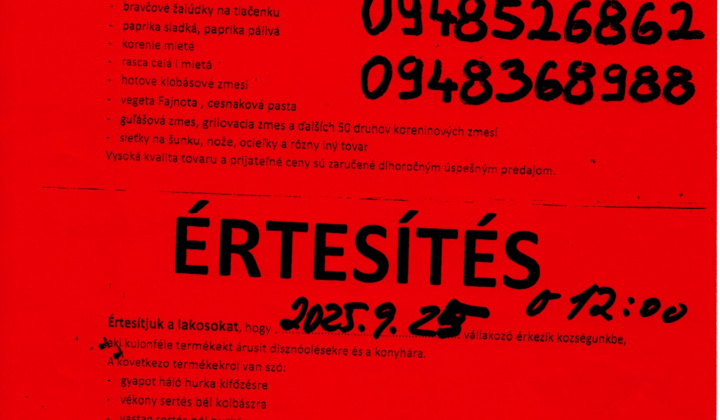 - bravčové žalúdky na tlačenku
- paprika sladká, paprika pálivá
- korenie mleté
- rasca celá i mletá
- hotové klobásové zmesi
- vegeta Fajnota , cesnaková pasta
- gulášová zmes, grilovacia zmes a ďalších 50 druhov koreninových zmesí
- sieťky na šunku, nože, ocieľky a rôzny iný tovar
Vysoká kvalita tovaru a prijateľné ceny sú zaručené dlhoročným úspešným predajom.
0948526862
0948368988
ÉRTESÍTÉS
o 12:00
Értesítjuk a lakosokat, hogy 2025.9. vállakozó érkezik kozségunkbe,
aki kulonféle termékekt árusít disznóolésekre és a konyhára.
A kovetkezo termékekrol van szó:
- gyapot háló hurka kifőzésre
- vékony sertés bél kolbászra
- vastag sertés bél